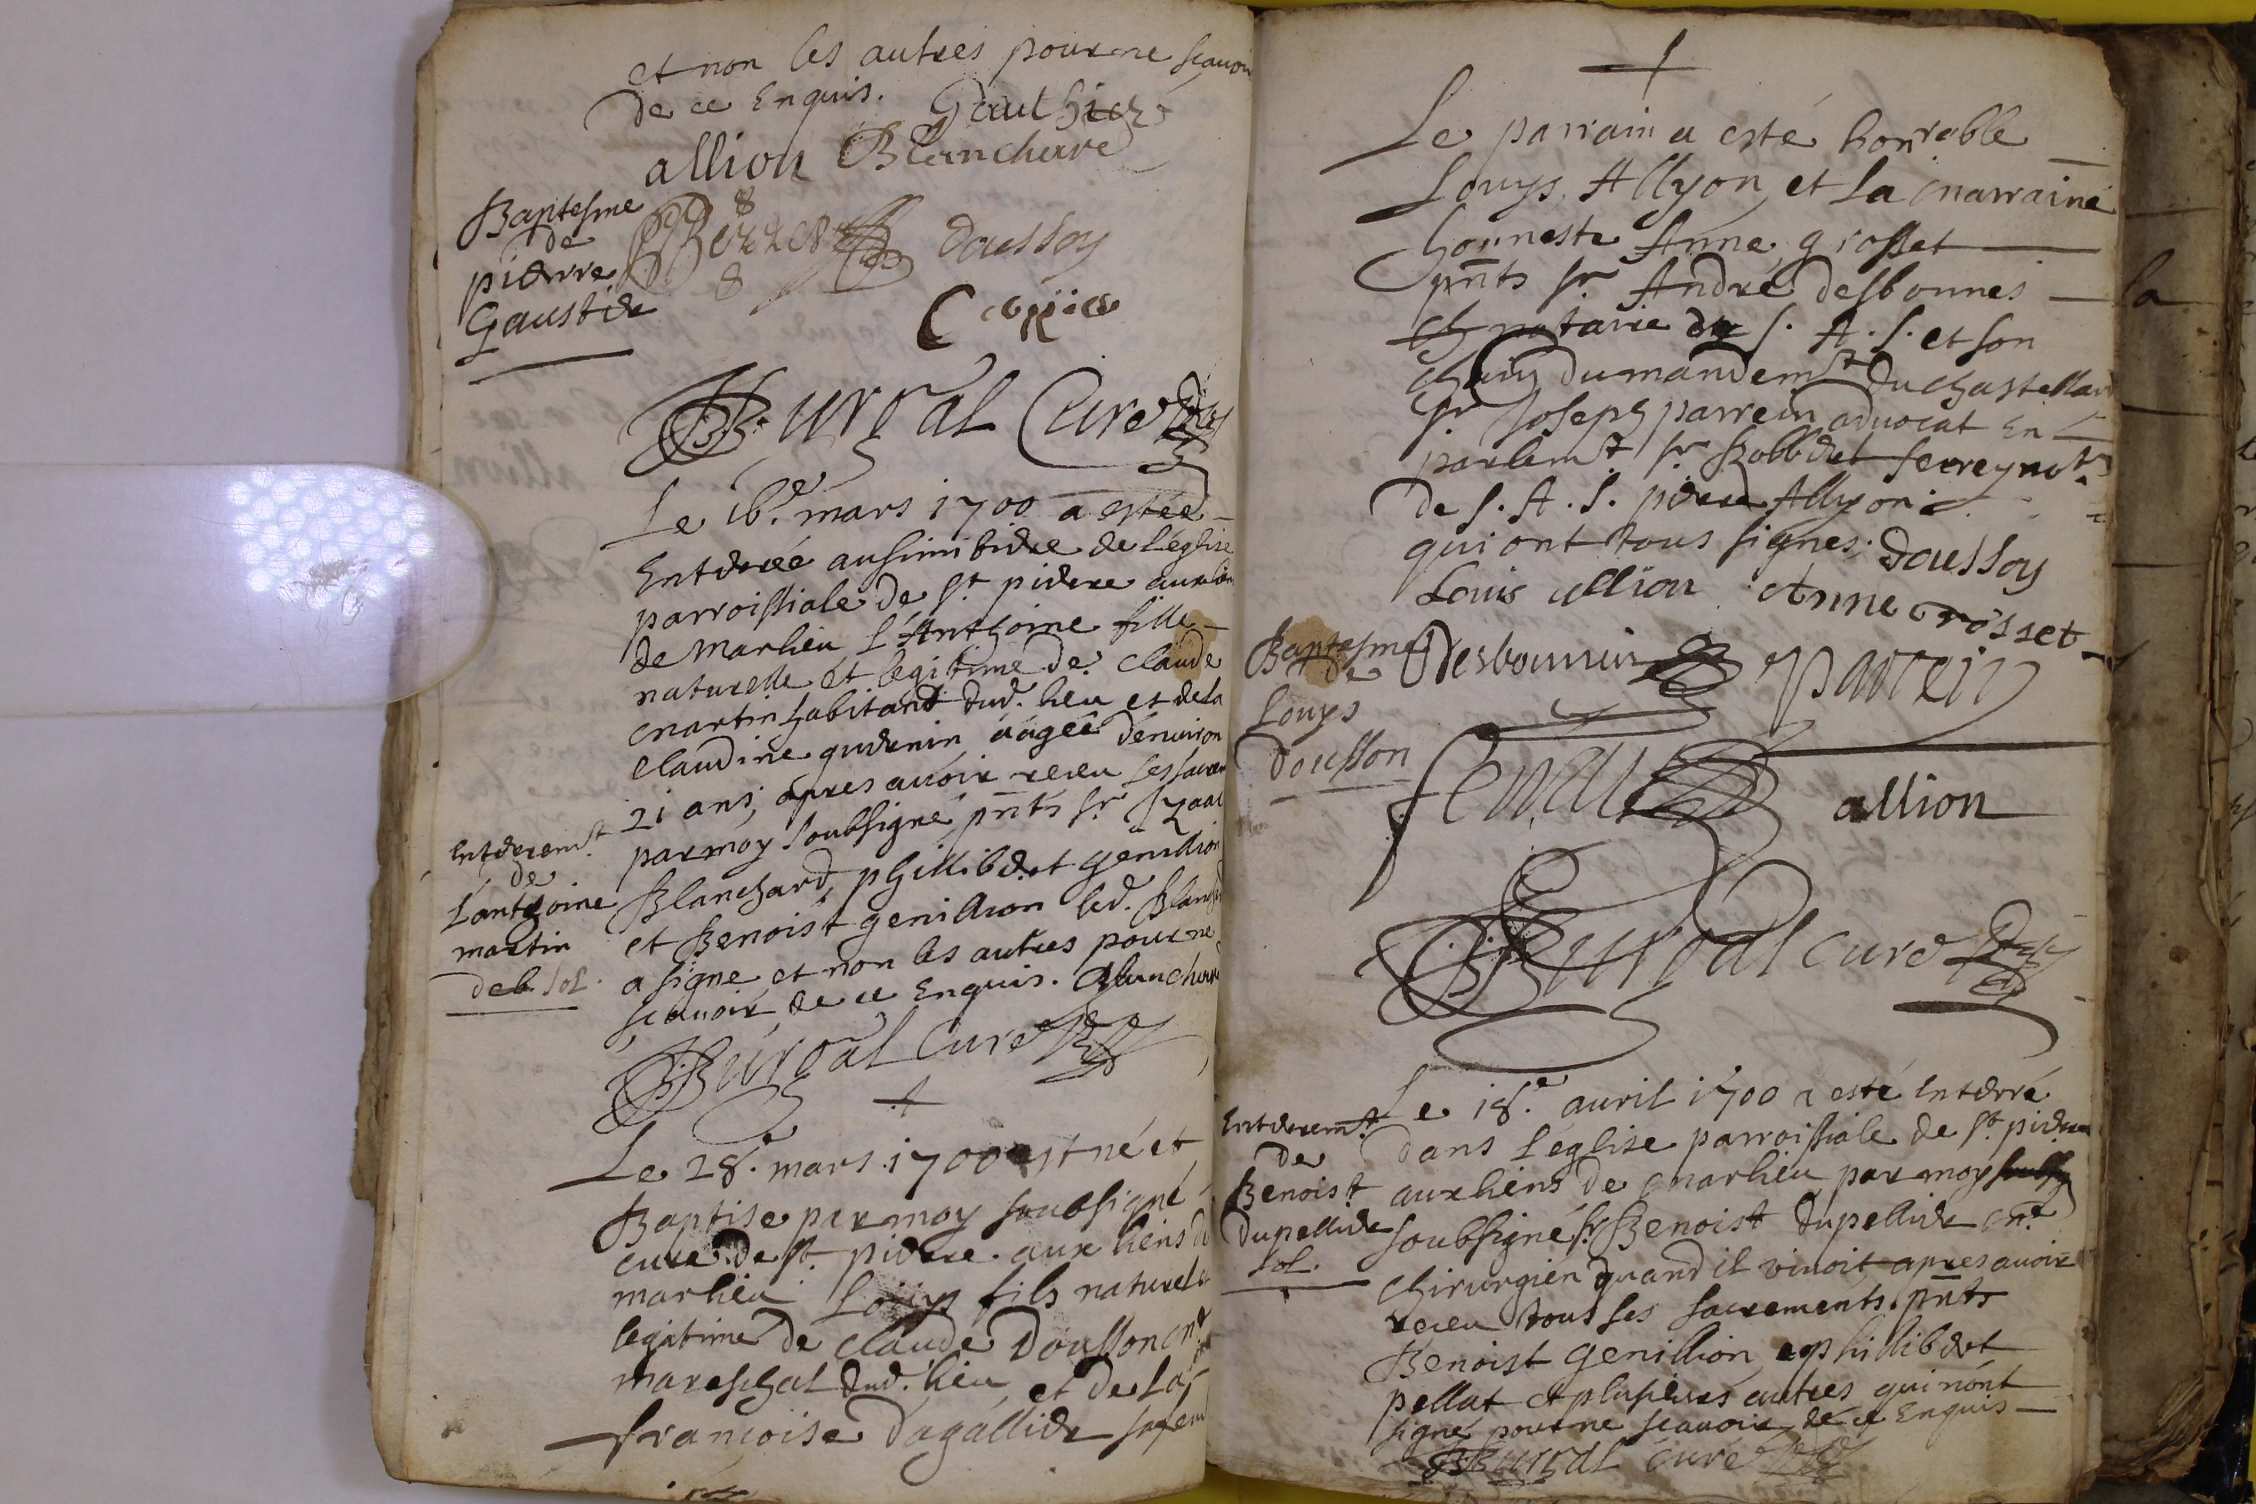 et non les autres pour ne scavoir
de ce Enquis. Gauthier
allion Blanchare
Baptesme
de
pierre
Gaustier
doussoy
Copiée
Burgal Curé
Le 16e. mars 1700 a estée
Enterée au simitiere de l'eglise
parroissiale de st. pierre aux liens
de marlieu l'Anthoine fille
naturelle et legitime de claude
martin habitant dud. lieu et de la
claudine guerin aagée d'environ
21 ans, apres avoir receu ses sacrem
par moy soubsigné pnts sr. Izaac
Blanchard, phillibert genillion
et Benoist genillion led. Blanchard
a signe et non les autres pour ne
scavoir de ce Enquis. Blanchare
Burgal Curé
Enterremt
de
l'anthoine
martin
deb. sol.
Le 28e. mars 1700 est né et
Baptise par moy soubsigné
curé de st. pierre aux liens de
marlieu Louys fils naturel et
legitime de claude Dousson mre
mareschal dud. lieu et de la
francoise dagallier sa fem
Le parrain a esté honnrable
Louys Allyon et la marraine
honneste Anne grosset
pnts sr. André desbonnes
notaire de S. A. S. et son
du mandemt du chastellard
sr. Joseph parrein advocat En
parlemt sr. Robbert
de S. A. S. pierre Allyon
qui ont tous signes. doussoy
Louis allion Anne grosset
Baptesme
de
Louys
dousson
Parrein
allion
Burgal curé
Le 18e. avril 1700 a esté Enterré
dans l'eglise parroissiale de st. pierre
aux liens de marlieu par moy
soubsigné sr. Benoist dupellier mre
chirurgien quand il vivoit apres avoir
receu tous ses sacrements. pnts
Benoist genillion phillibert
pellat et plusieurs autres qui n'ont
signé pour ne scavoir de ce Enquis
Burgal curé
Enterremt
de
Benoist
dupellier
sol.